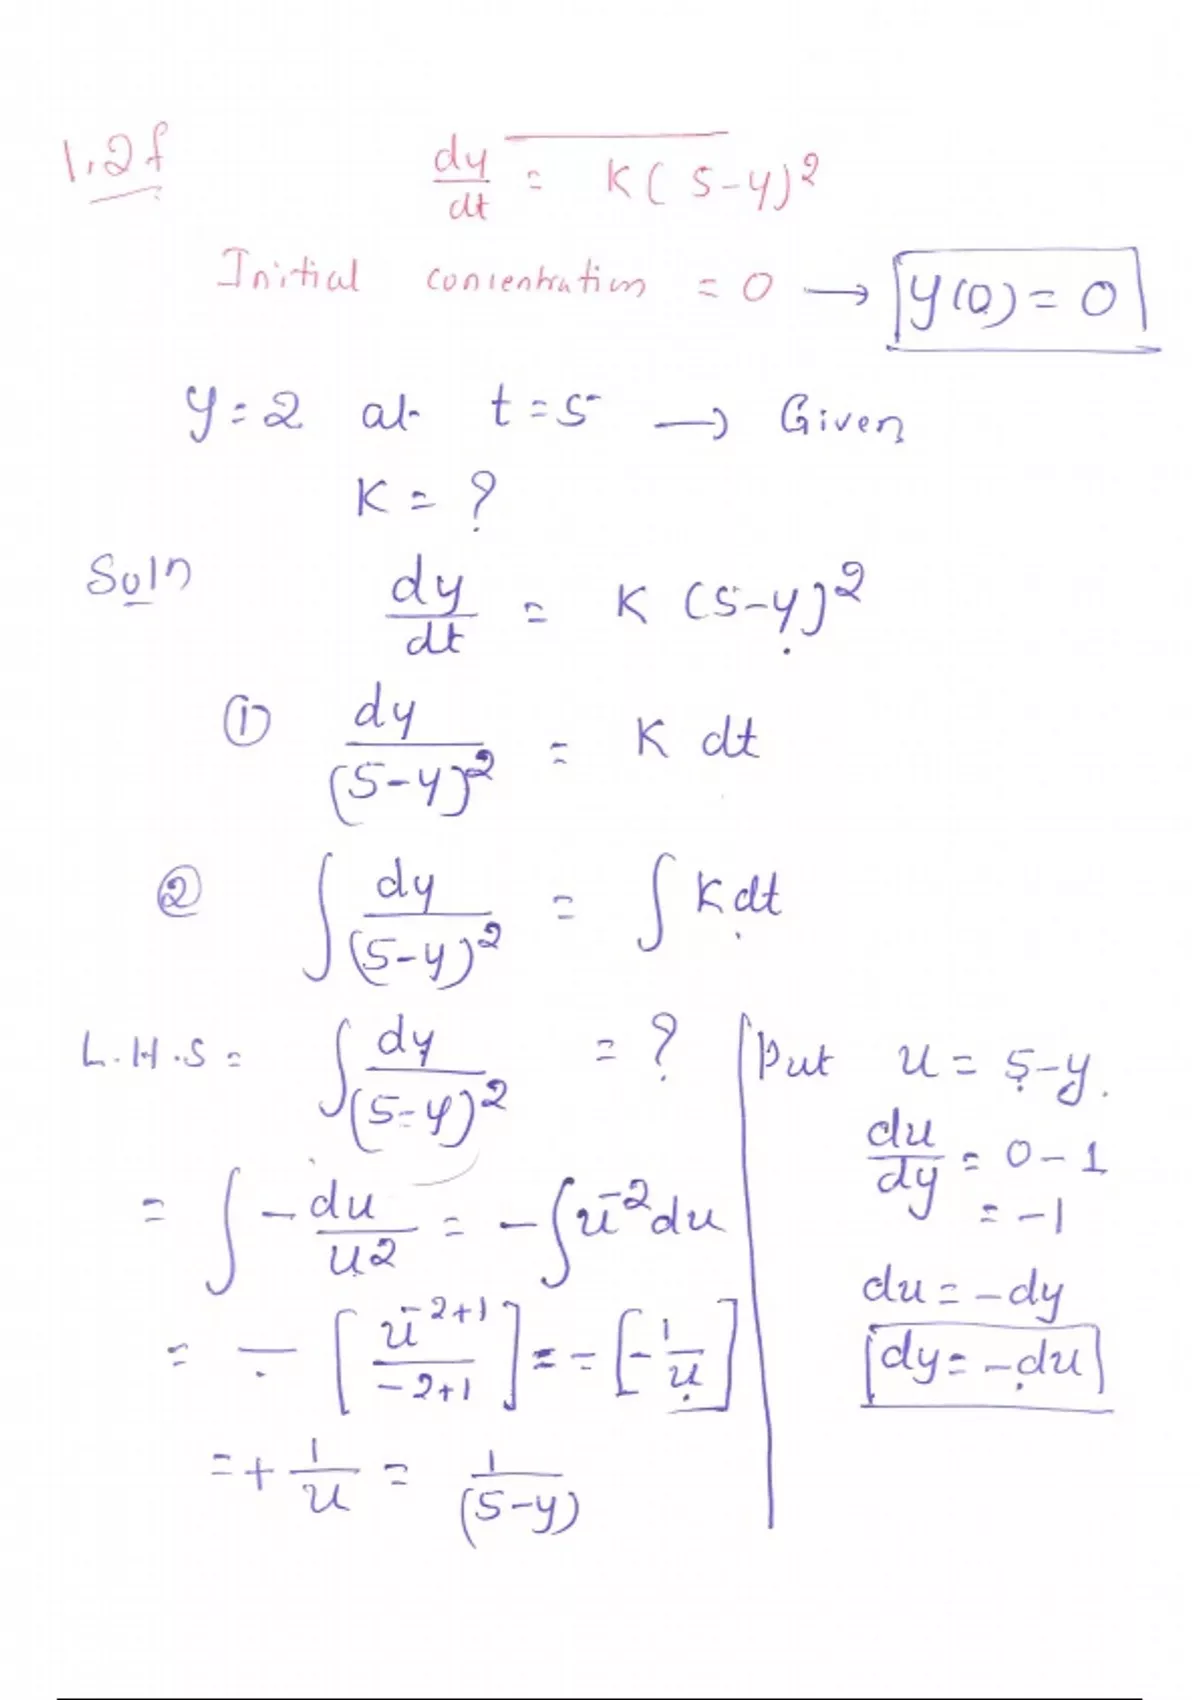 1.2f dy/dt = K(5-y)²
Initial concentration = 0 → y(0) = 0
y = 2 at t = 5 → Given
K = ?
Soln dy/dt = K (5-y)²
① dy/(5-y)² = K dt
② ∫ dy/(5-y)² = ∫ K dt
L.H.S = ∫ dy/(5-y)² = ?
= ∫ -du/u2 = -∫ u⁻² du
= - [u⁻²⁺¹/-2+1] = - [-1/u]
= + 1/u = 1/(5-y)
Put u = 5-y.
du/dy = 0-1
= -1
du = -dy
dy = -du